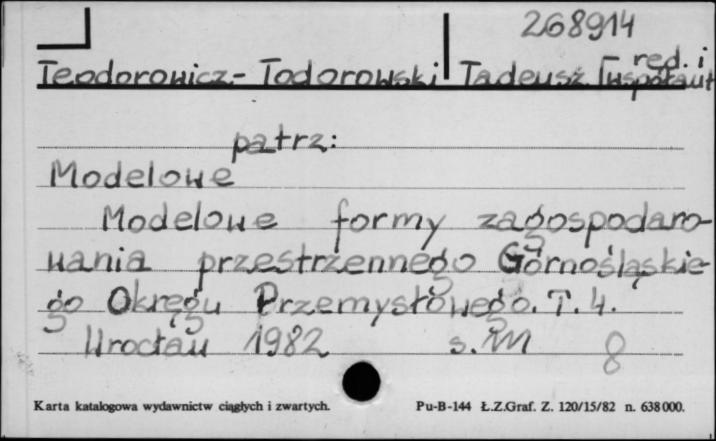 268914
Teodorowicz-Todorowski Tadeusz red. i współaut
patrz:
Modelowe
Modelowe formy zagospodaro-
wania przestrzennego Górnośląskie-
go Okręgu Przemysłowego. T. 4.
Wrocław 1982 s.
8
Karta katalogowa wydawnictw ciągłych i zwartych. Pu-B-144 Ł.Z.Graf. Z. 120/15/82 n. 638000.